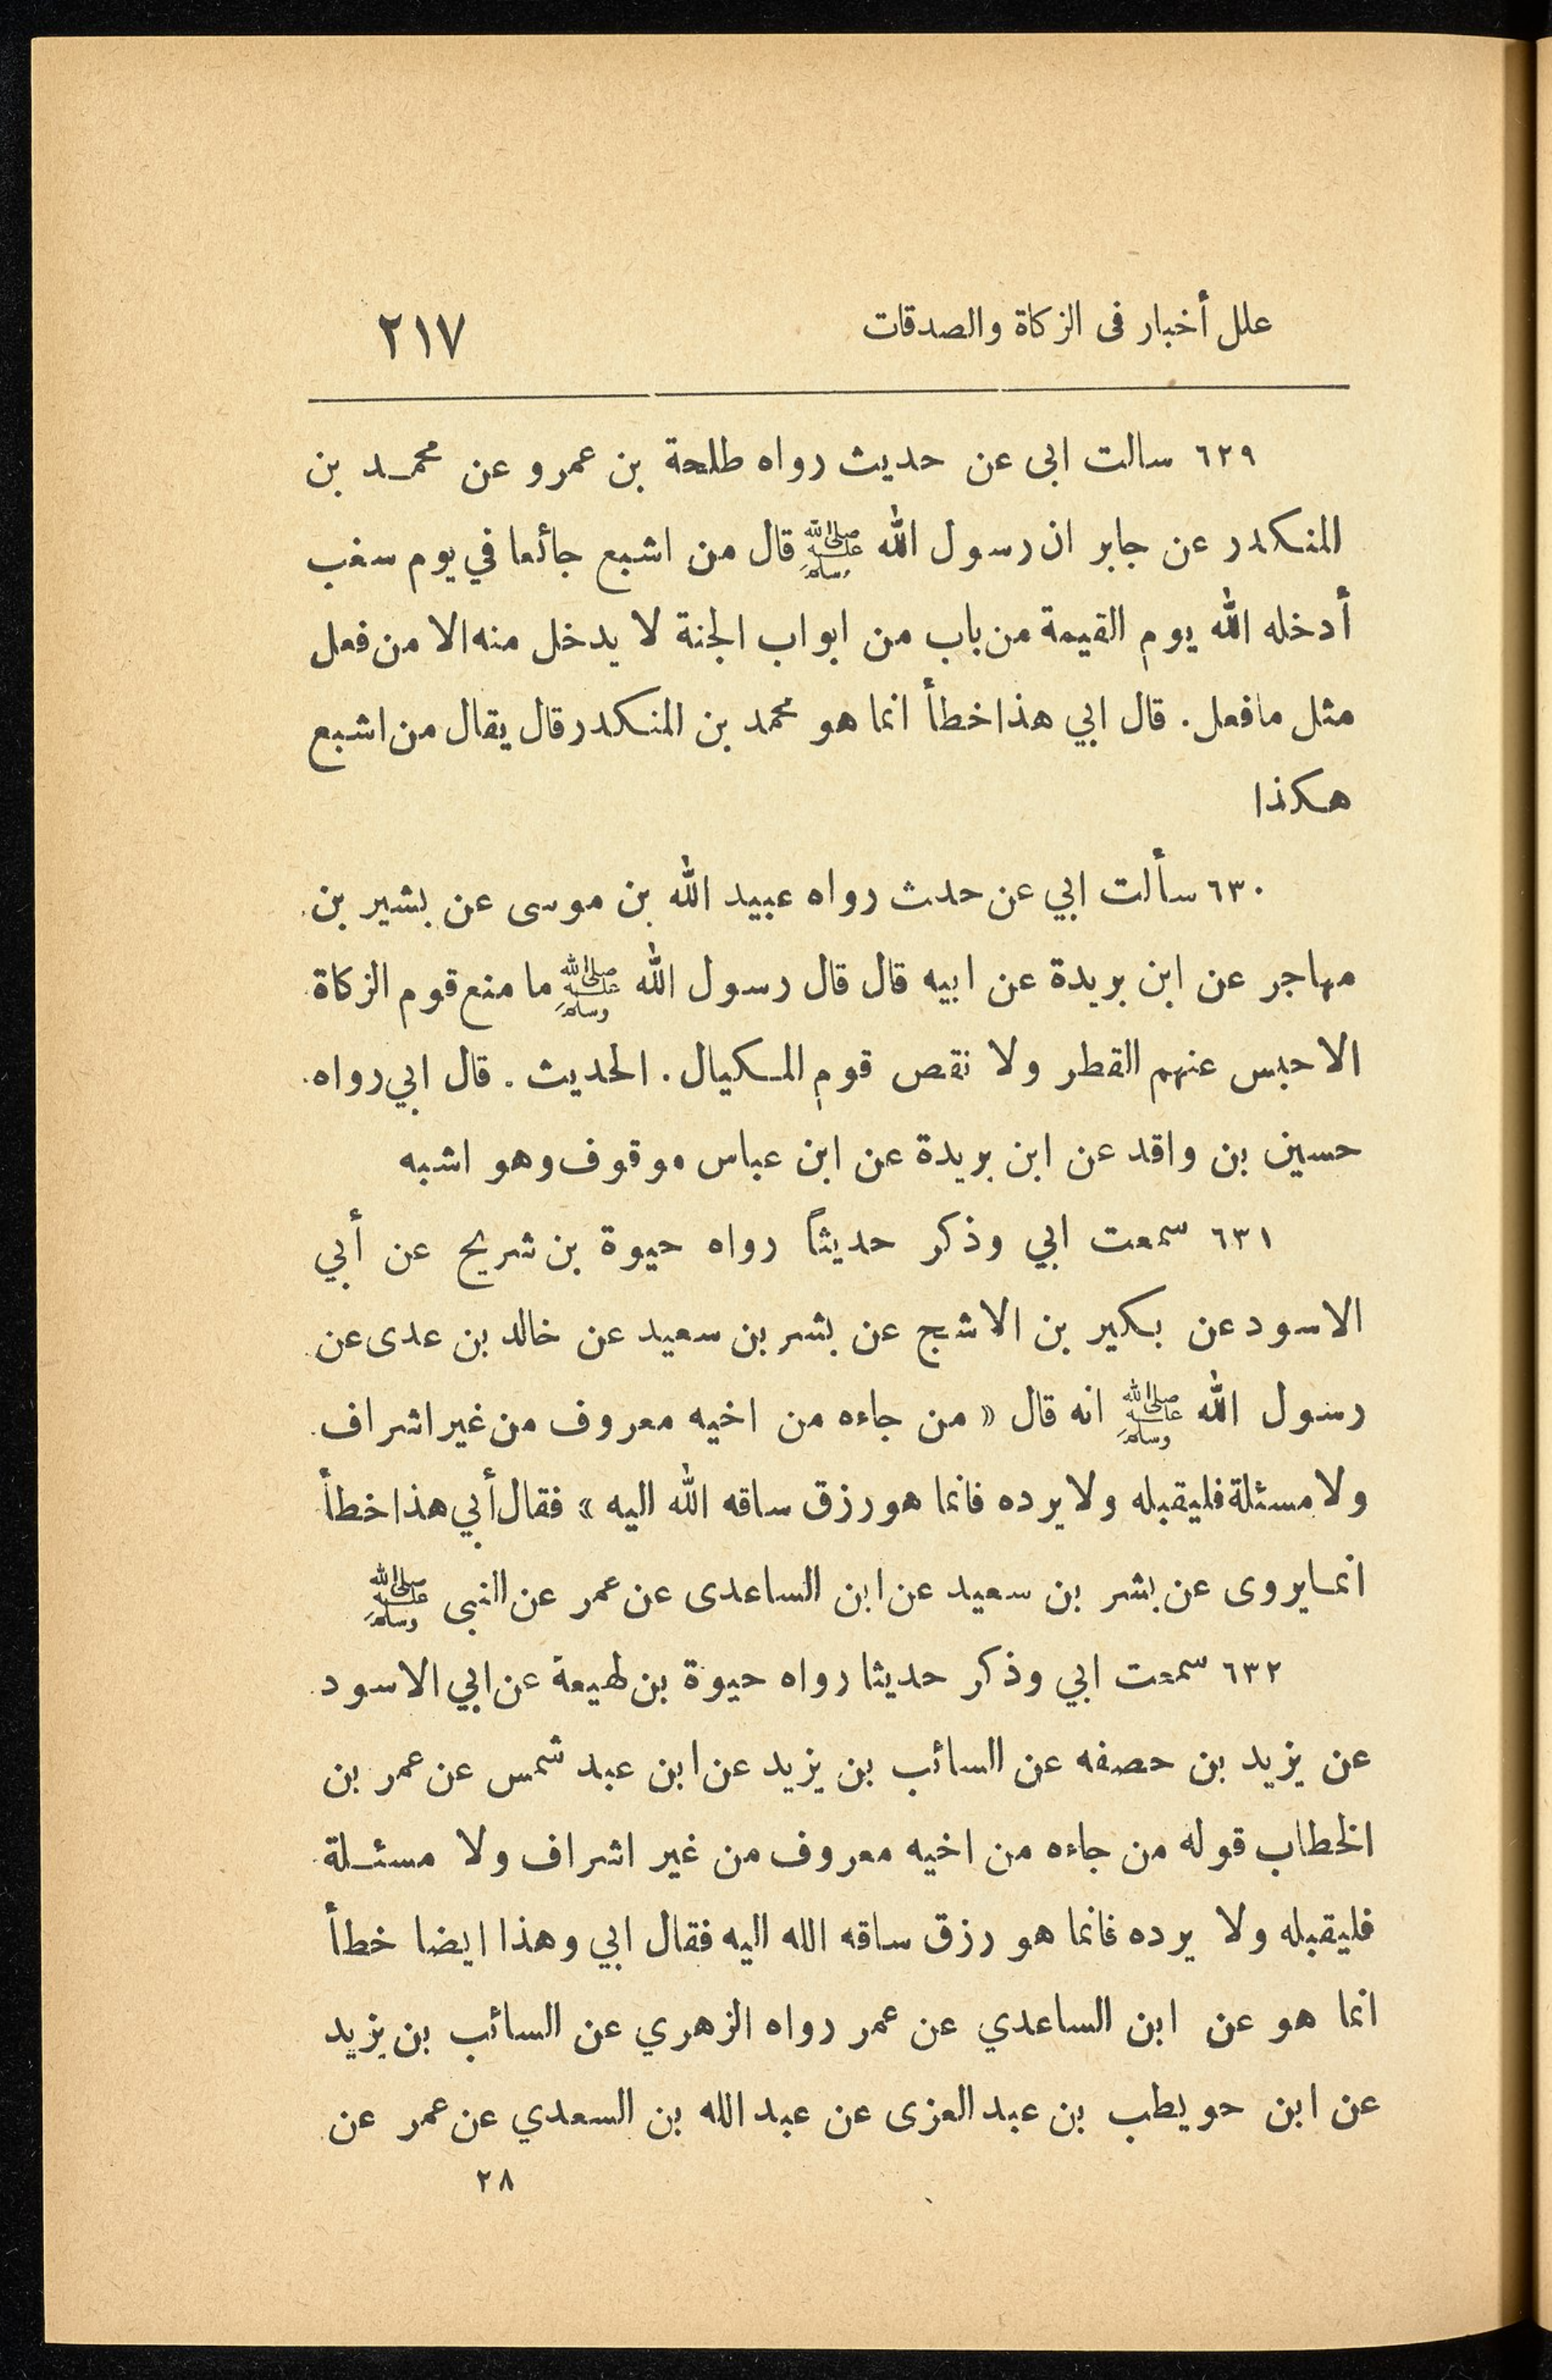 علل أخبار فى الزكاة والصدقات ٢١٧
٦٢٩ سالت ابى عن حديث رواه طلحة بن عمرو عن محمد بن
المنكدر عن جابر ان رسول الله ﷺ قال من اشبع جائعا في يوم سغب
أدخله الله يوم القيمة من باب من ابواب الجنة لا يدخل منه الا من فعل
مثل ما فعل . قال ابي هذا خطأ انما هو محمد بن المنكدر قال يقال من اشبع
هكذا
٦٣٠ سألت ابي عن حدث رواه عبيد الله بن موسى عن بشير بن
مهاجر عن ابن بريدة عن ابيه قال قال رسول الله ﷺ ما منع قوم الزكاة
الا حبس عنهم القطر ولا نقص قوم المكيال . الحديث . قال ابي رواه
حسين بن واقد عن ابن بريدة عن ابن عباس موقوف وهو اشبه
٦٣١ سمعت ابي وذكر حديثاً رواه حيوة بن شريح عن أبي
الاسود عن بكير بن الاشج عن بشر بن سعيد عن خالد بن عدى عن
رسول الله ﷺ انه قال « من جاءه من اخيه معروف من غير اشراف
ولا مسئلة فليقبله ولا يرده فانما هو رزق ساقه الله اليه » فقال أبي هذا خطأ
انما يروى عن بشر بن سعيد عن ابن الساعدى عن عمر عن النبى ﷺ
٦٣٢ سمعت ابي وذكر حديثا رواه حيوة بن لهيعة عن ابي الاسود
عن يزيد بن حصفه عن السائب بن يزيد عن ابن عبد شمس عن عمر بن
الخطاب قوله من جاءه من اخيه معروف من غير اشراف ولا مسئلة
فليقبله ولا يرده فانما هو رزق ساقه الله اليه فقال ابي وهذا ايضا خطأ
انما هو عن ابن الساعدي عن عمر رواه الزهري عن السائب بن يزيد
عن ابن حويطب بن عبد العزى عن عبد الله بن السعدي عن عمر عن
٢٨